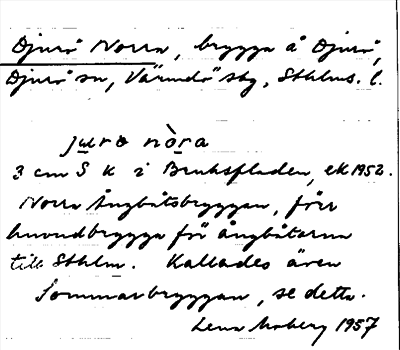 Djurö Norra, brygga å Djurö,
Djurö sn, Värmdö skg, Sthlms. l.
jurö nòra
3 cm S k i Bruksfladen, ek 1952.
Norra Ångbåtsbryggan, förr
huvudbrygga för ångbåtarna
till Sthlm. Kallades även
Sommarbryggan, se detta.
Lena Moberg 1957